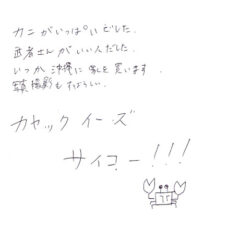 カニがいっぱいでした。
武者さんがいい人だした。
いつか沖縄に家を買います。
写真撮影もすばらしい。
カヤック イーズ
サイコー!!!